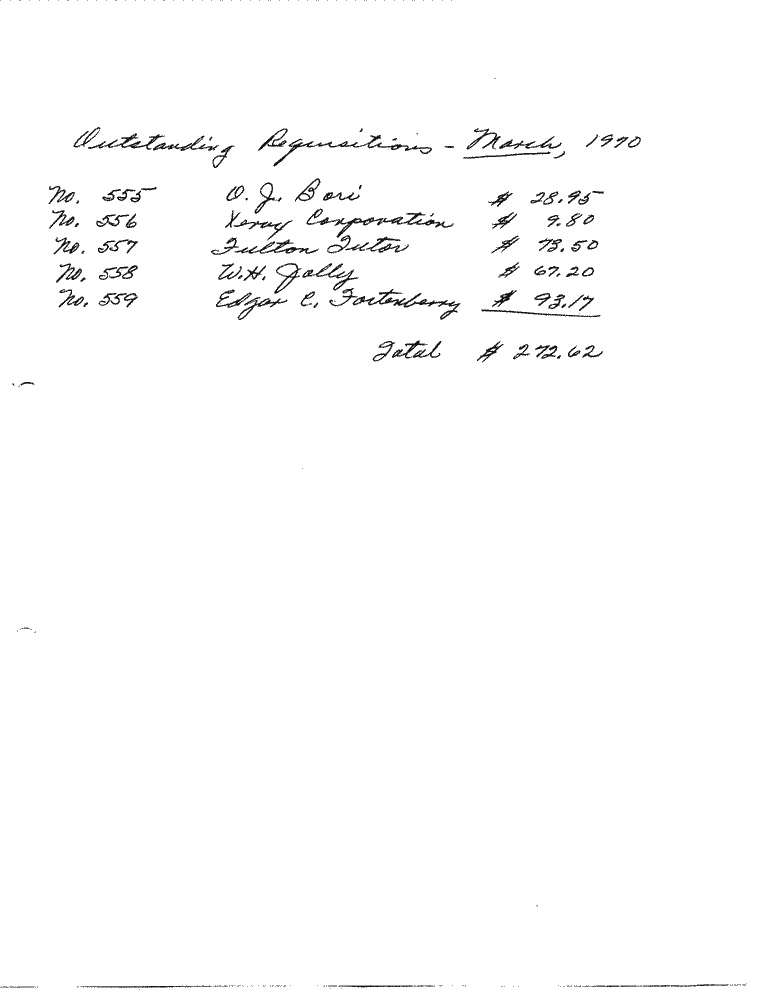 Outstanding Requisitions - March, 1970
No. 555 O. J. Bori $ 28.95
No. 556 Xerox Corporation $ 9.80
No. 557 Fulton Tutor $ 73.50
No. 558 W.H. Jolly $ 67.20
No. 559 Edgar C. Fortenberry $ 93.17
Total $ 272.62